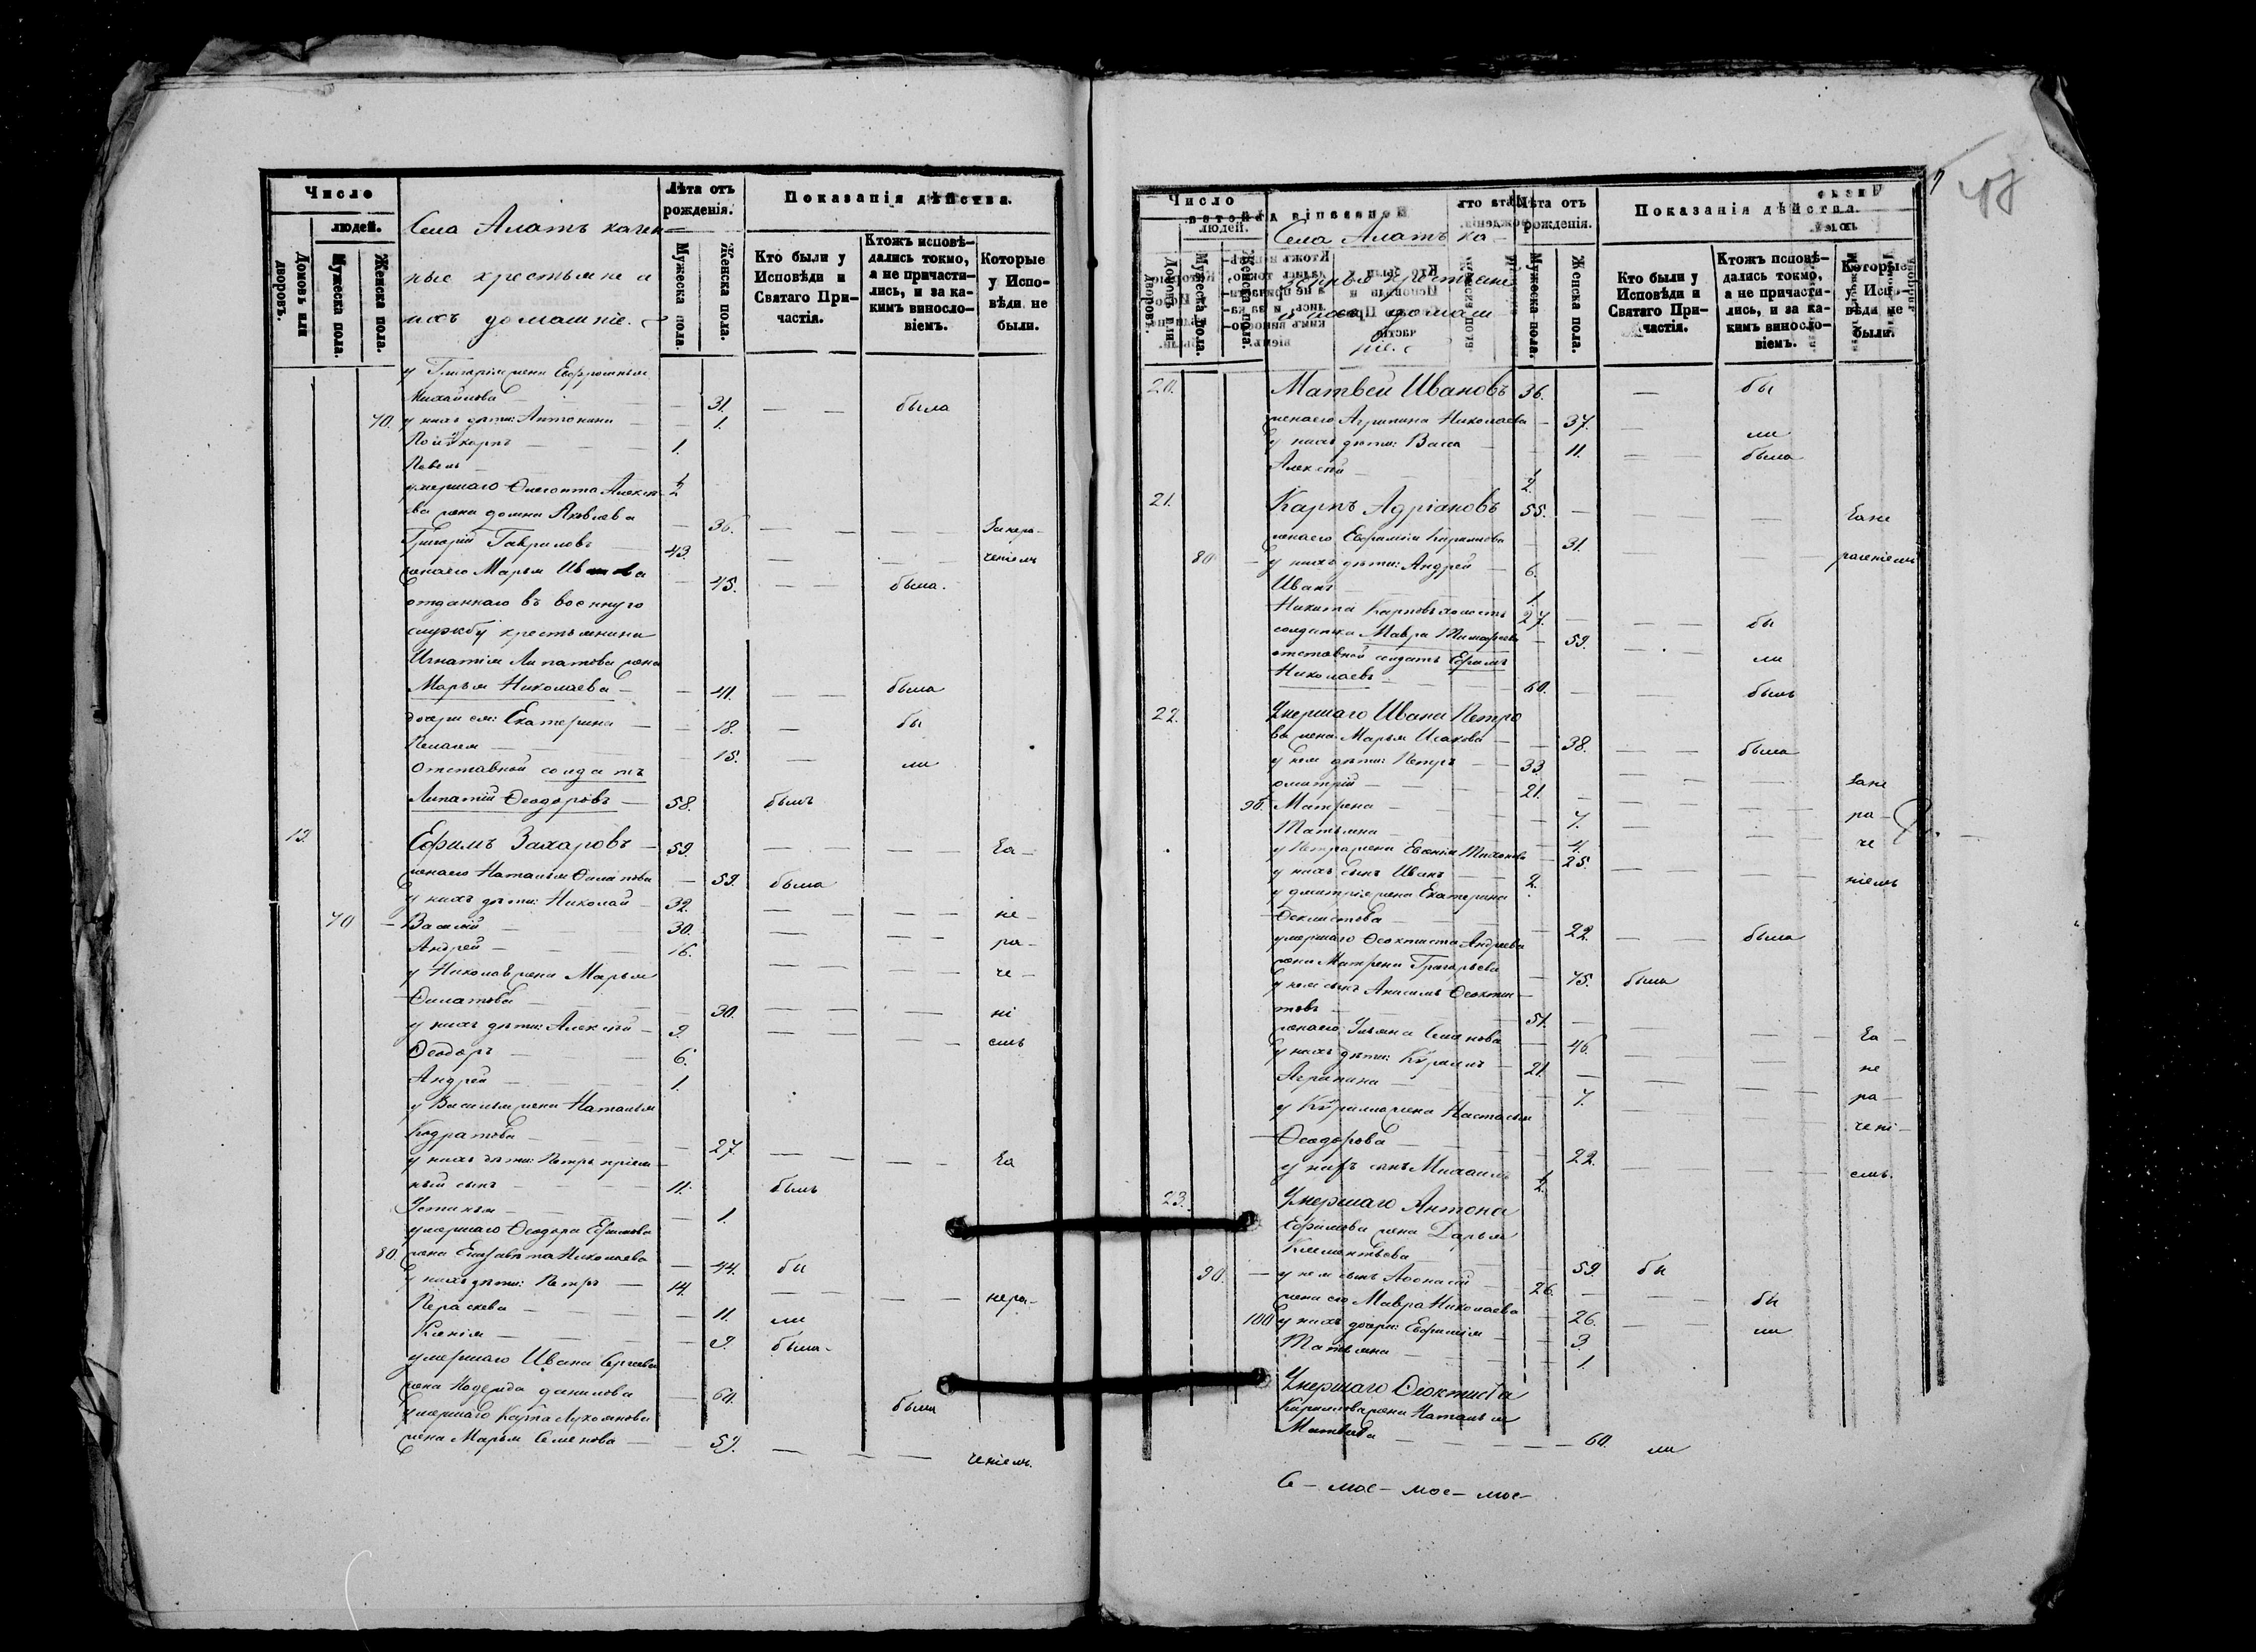 Число
людей.
Домовъ или дворовъ.
Мужеска пола.
Женска пола.
Села Алатъ казен-
ные крестьяне и
ихъ домашніе.
Лѣта отъ рожденія.
Мужеска пола.
Женска пола.
Показанія дѣйства.
Кто были у Исповѣди и Святаго Причастія.
Ктожъ исповѣдались токмо, а не причастились, и за какимъ винословіемъ.
Которые у Исповѣди не были.
у Григорія жена Евфросинья
Михайлова — — 31. — — была
70. у нихъ дѣти: Антонина — — 1.
Поликарпъ — — 1.
Павелъ — — 1/2
умершаго Алексѣ-
ва жена Домна Яковлева — 36. — — — За нера-
Григорій Гавриловъ — 43. — — — ченіемъ
жена его Марья Иванова — 45. — — была.
отданнаго въ военную
службу крестьянина
Игнатія Липатова жена
Марья Николаева — — 41. — — была
дочери ея: Екатерина — — 18. — бы
Пелагея — — 15. — ли
Отставной солдатъ
Липатій Ѳеодоровъ — 58. былъ
19. Ефимъ Захаровъ — 59. — — — За-
жена его Наталья — 59. была
у нихъ дѣти: Николай — 32. — — — не-
70 — Василій — 30. — — — ра-
Андрей — 16. — — — че-
у Николая жена Марья
Филатова — — 30. — — — ні
у нихъ дѣти: Алексѣй — 9. — — — емъ
Ѳеодоръ — 6.
Андрей — 1.
у Василья жена Наталья
Кодратова — — 27. — — — За
у нихъ дѣти: Петръ пріем-
ный сынъ — 11. былъ
Устинья — — 1.
умершаго Ѳеодора Ефимова
80 жена Елизавета Николаева — 44. бы
у нихъ дѣти: Петръ — 14. — — — нера-
Параскева — — 11. ли
Ксенія — — 9. была-
умершаго Ивана Сергѣева
жена Надежда Данилова — 60. была
умершаго Карпа Лукоянова
жена Марья Семенова — — 59. — — — ченіемъ.
48
Число
людей.
Домовъ или дворовъ.
Мужеска пола.
Женска пола.
Села Алатъ ка-
зенные крестьяне
и ихъ домаш
ніе.
Лѣта отъ рожденія.
Мужеска пола.
Женска пола.
Показанія дѣйства.
Кто были у Исповѣди и Святаго Причастія.
Ктожъ исповѣдались токмо, а не причастились, и за какимъ винословіемъ.
Которые у Исповѣди не были.
20. Матвей Ивановъ 36. — бы
жена его Агрипина Николаева — 37. — ли
у нихъ дѣти: Васса — 11. — — была
Алексѣй — 1/2
21. Карпъ Адріановъ 55. — — — За не
жена его Евфимія Кирилова 31. — — — раченіемъ
80 — у нихъ дѣти: Андрей — 6.
Иванъ — 1.
Никита Карповъ холостъ 27. — — бы
солдатка Мавра Тимофеева — 59. — — ли
отставной солдатъ Ефимъ
Николаевъ — 60. — — былъ
22. Умершаго Ивана Петро
ва жена Марья Исакова — 38. — — была
у нея дѣти: Петръ — 33. — — За не
Дмитрій — 21. — —
90. Матрена — 7. — — ра-
Татьяна — 4. — — че
у Петра жена Евгенія Тихонова — 25. — —
у нихъ сынъ Иванъ — 2. — — ніемъ
у Дмитрія жена Екатерина
Феклистова — — 22. — — была
умершаго Ѳеоктиста Андреева
жена Матрена Григорьева — 75. была
у нея сынъ Анисимъ Ѳеоктис-
товъ — 51. —
жена его Ульяна Семенова — 46. — — За-
у нихъ дѣти: Кириллъ — 21. — — не
Агрипина — — 7. — — ра-
у Кирилла жена Настасья
Ѳеодорова — — 22. — — чені-
у нихъ сынъ Михаилъ 1/2 — — емъ.
23. Умершаго Антона
Ефимова жена Дарья
Климентьева — — 59. бы
90. — у нея сынъ Аѳонасій — 26. — — бы
жена его Мавра Николаева — 26. — ли
100 у нихъ дочери: Евфимія — 3.
Татьяна — — 1.
Умершаго Ѳеоктиста
Кирилова жена Наталья
Матвеева — — — 60. ли